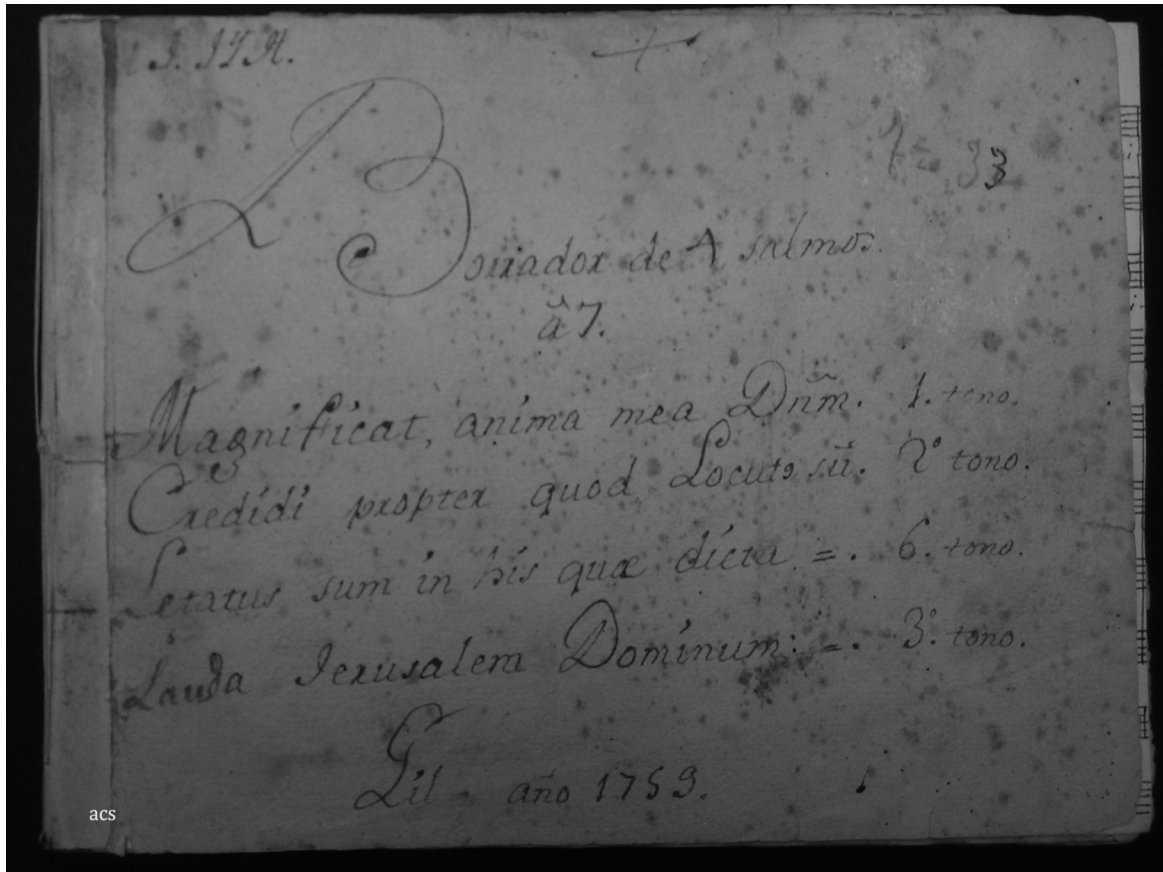 Borrador de 4 salmos.
â 7.
Magnificat, anima mea Dnm̃. 1. tono.
Credidi propter quod Locutꝰ sū. 2º tono.
Letatus sum in his quæ dicta =. 6. tono.
Lauda Jerusalem Dominum: =. 3º. tono.
Gil - año 1759.
acs